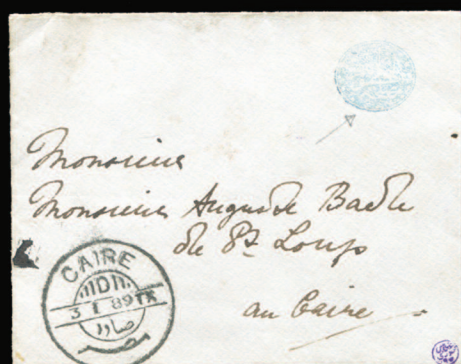 Monsieur
Monsieur Auguste Bacle
de St. Loup
au Caire
CAIRE
D
3 I 89 TR
صادر
مصر